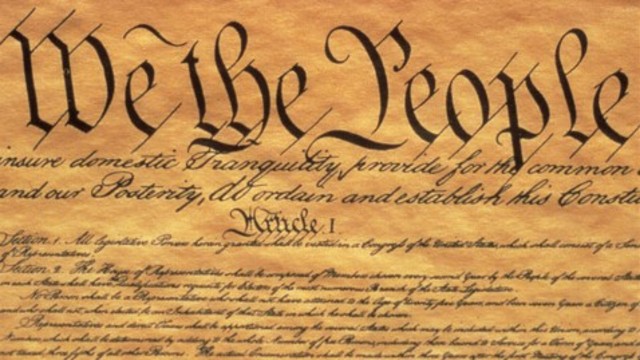 We the People
insure domestic Tranquility, provide for the common
and our Posterity, do ordain and establish this
Article. I.
Section. 1. All legislative Powers herein granted shall be vested in a Congress of the United States, which shall consist of a
of Representatives.
Section. 2. The House of Representatives shall be composed of Members chosen every second Year by the People of the several
in each State shall have Qualifications requisite for Electors of the most numerous Branch of the State Legislature.
No Person shall be a Representative who shall not have attained to the Age of twenty five Years, and been seven Years a Citizen of
and who shall not, when elected, be an Inhabitant of that State in which he shall be chosen.
Representatives and direct Taxes shall be apportioned among the several States which may be included within this Union, according to
which shall be determined by adding to the whole Number of free Persons, including those bound to Service for a Term of Years, and
three fifths of all other Persons. The actual Enumeration shall be made within three Years after the